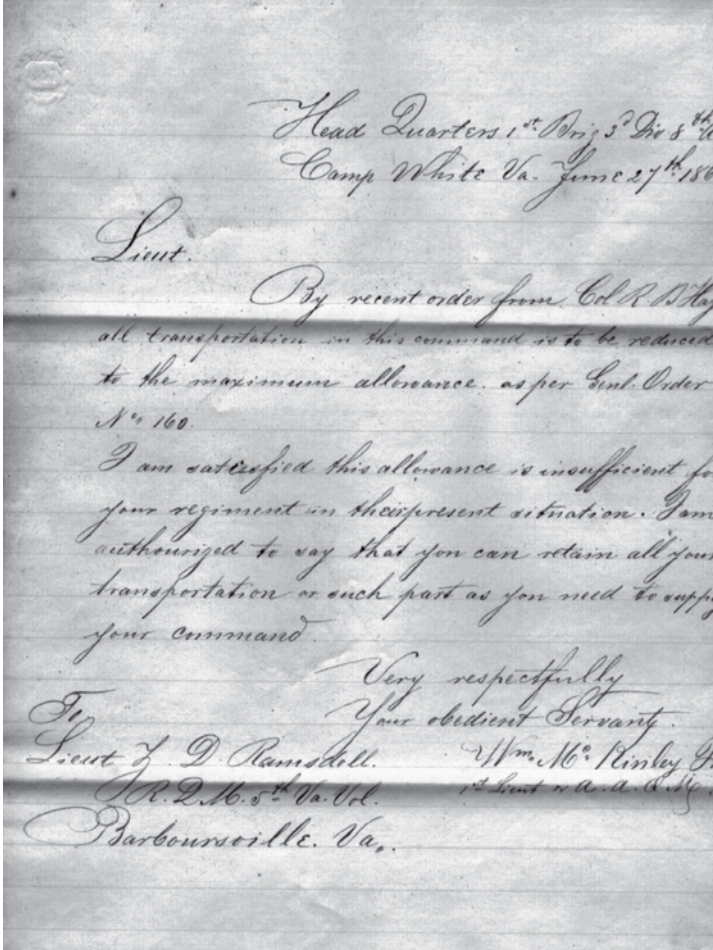 Head Quarters 1st. Brig 3d Div 8th A
Camp White Va. June 27th. 186
Lieut.
By recent order from Col R. B Hay
all transportation in this command is to be reduced
to the maximum allowance. as per Genl. Order
No. 160.
I am satisfied this allowance is insufficient fo
your regiment in their present situation. I am
authourized to say that you can retain all your
transportation or such part as you need to supply
your command.
Very respectfully
Your obedient Servant.
To
Lieut Z. D. Ramsdell.
Wm. Mc. Kinley
R. Q. M. 5th Va. Vol.
1st Lieut & A. A. Q M.
Barboursville. Va.